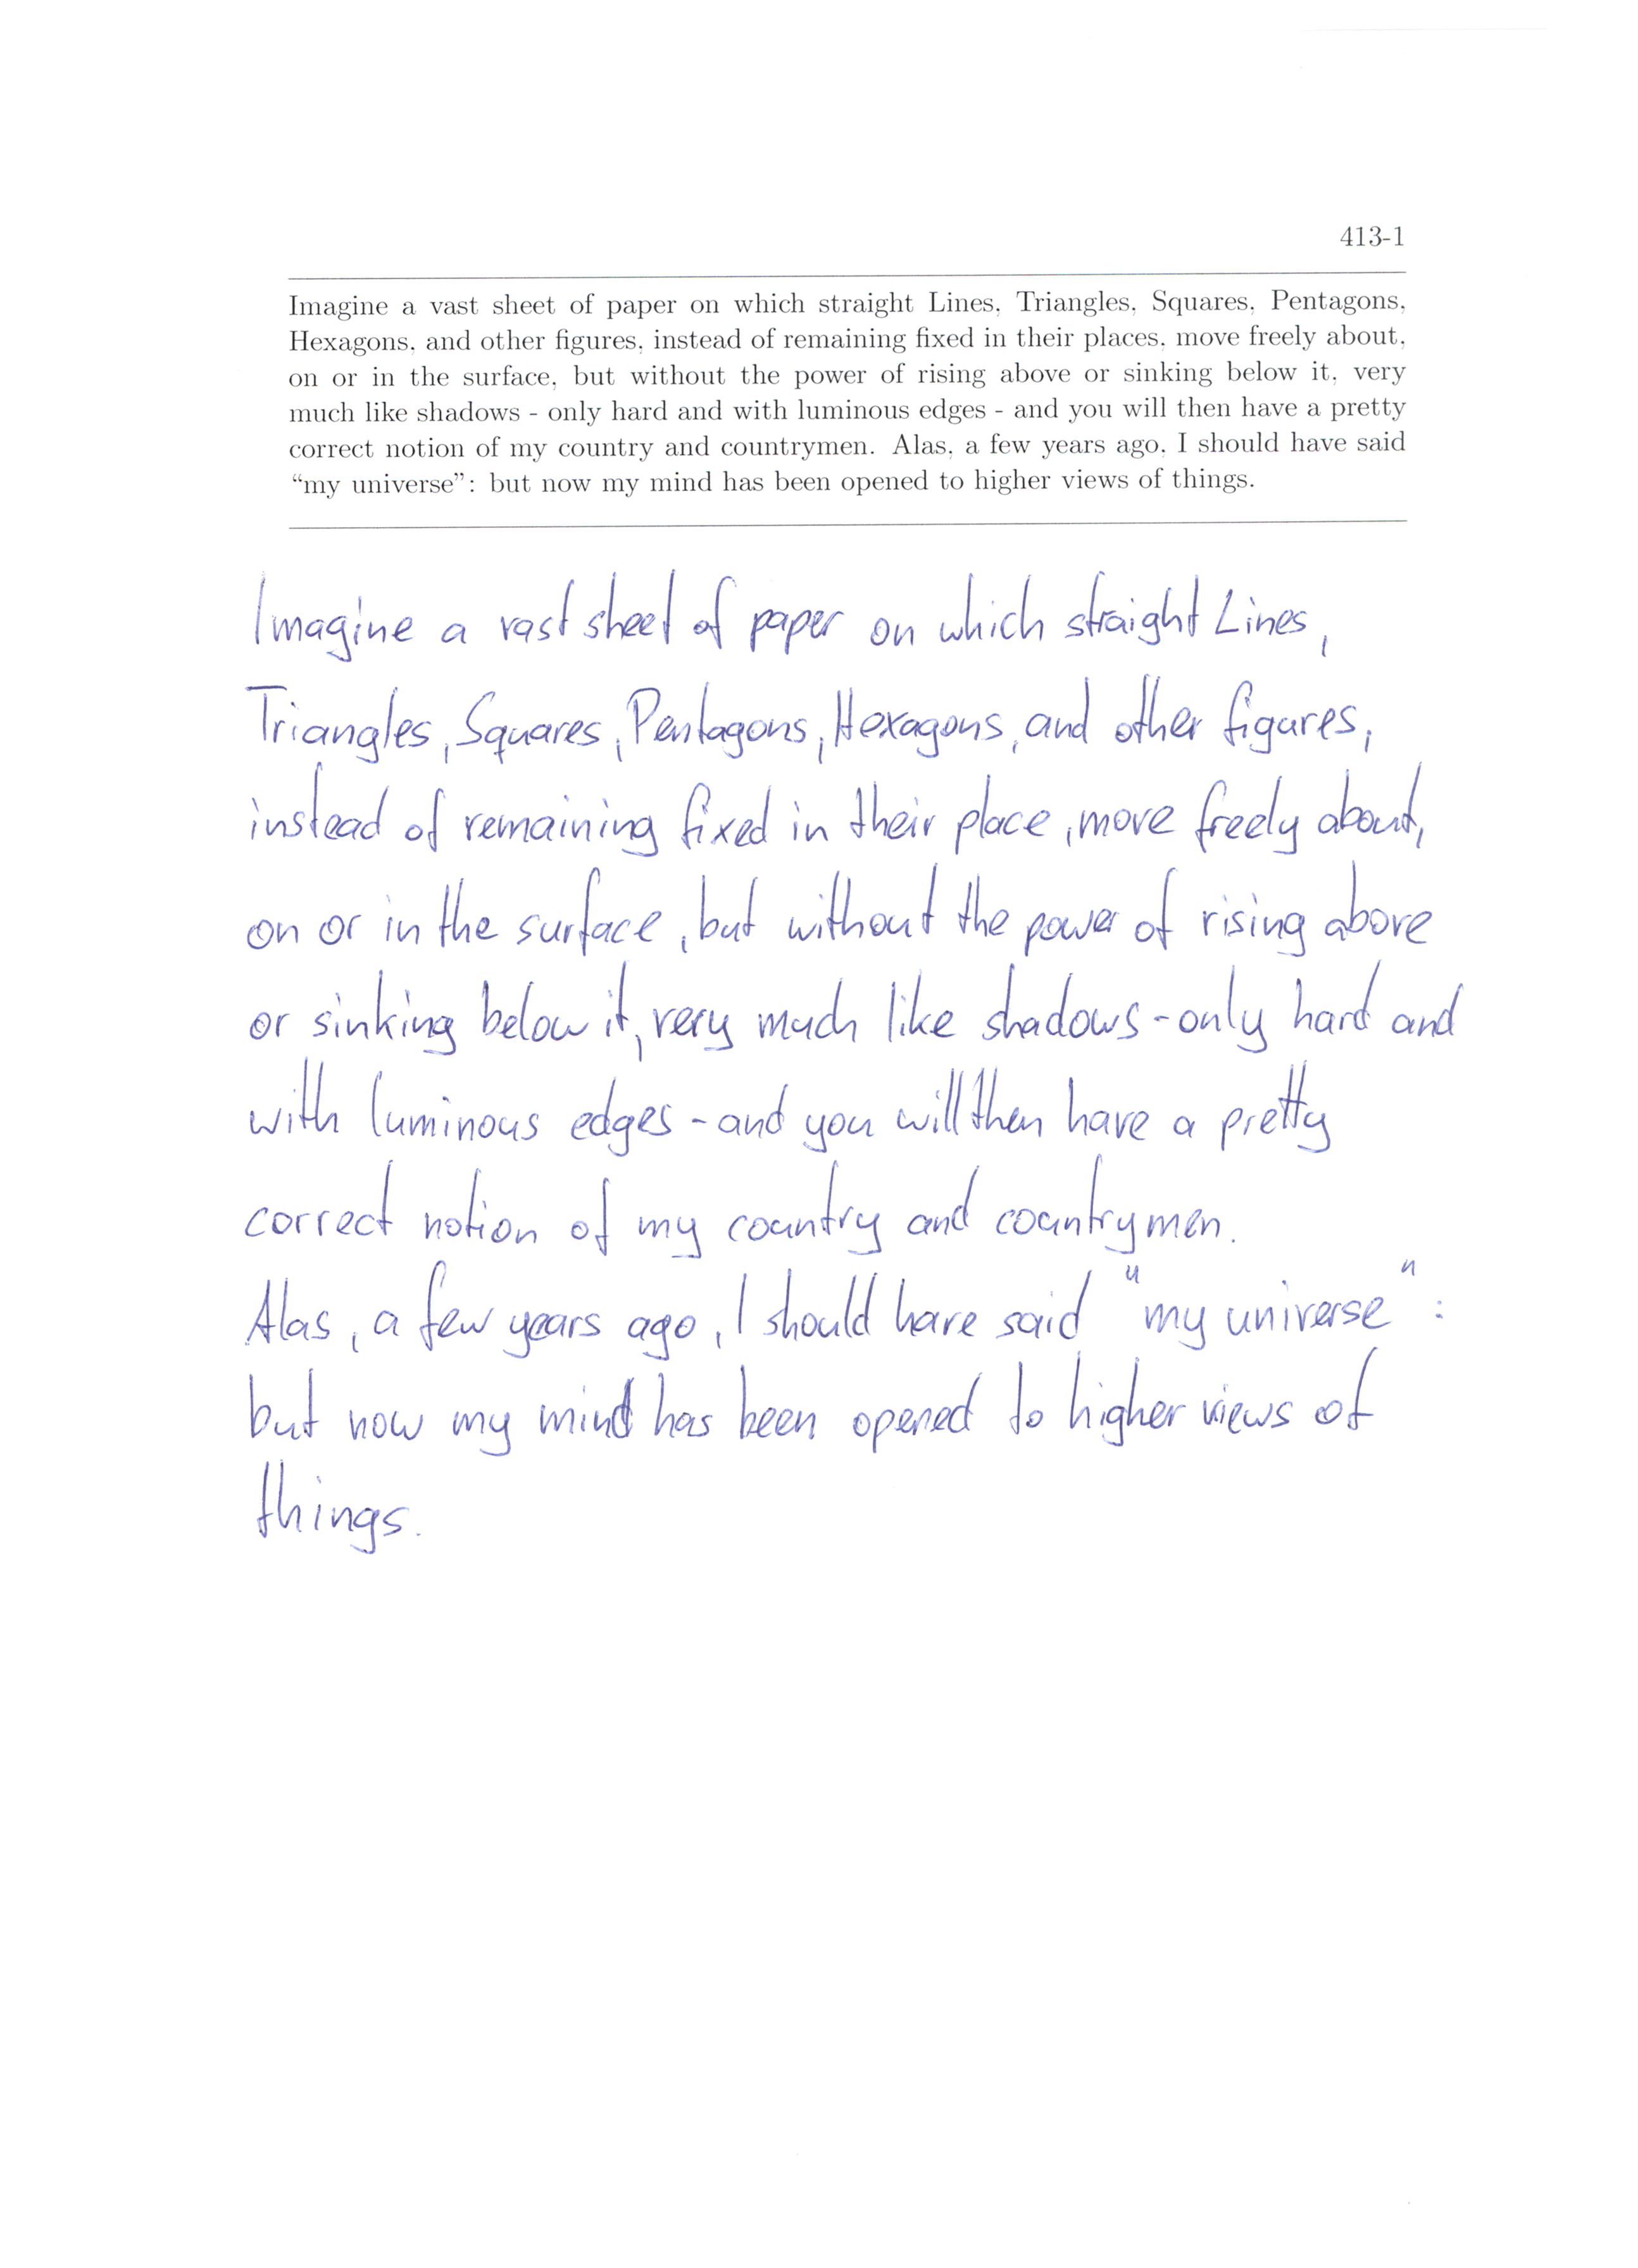 413-1
Imagine a vast sheet of paper on which straight Lines, Triangles, Squares, Pentagons,
Hexagons, and other figures, instead of remaining fixed in their places, move freely about,
on or in the surface, but without the power of rising above or sinking below it, very
much like shadows - only hard and with luminous edges - and you will then have a pretty
correct notion of my country and countrymen. Alas, a few years ago, I should have said
“my universe”: but now my mind has been opened to higher views of things.
Imagine a vast sheet of paper on which straight Lines,
Triangles, Squares, Pentagons, Hexagons, and other figures,
instead of remaining fixed in their place, move freely about,
on or in the surface, but without the power of rising above
or sinking below it, very much like shadows - only hard and
with luminous edges - and you will then have a pretty
correct notion of my country and countrymen.
Alas, a few years ago, I should have said "my universe" :
but now my mind has been opened to higher views of
things.